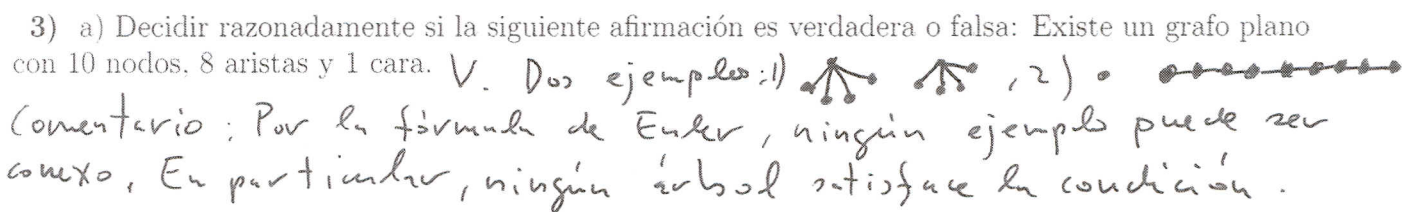 3) a) Decidir razonadamente si la siguiente afirmación es verdadera o falsa: Existe un grafo plano
con 10 nodos, 8 aristas y 1 cara. V. Dos ejemplos: 1) , 2)
Comentario: Por la fórmula de Euler, ningún ejemplo puede ser
conexo. En particular, ningún árbol satisface la condición.